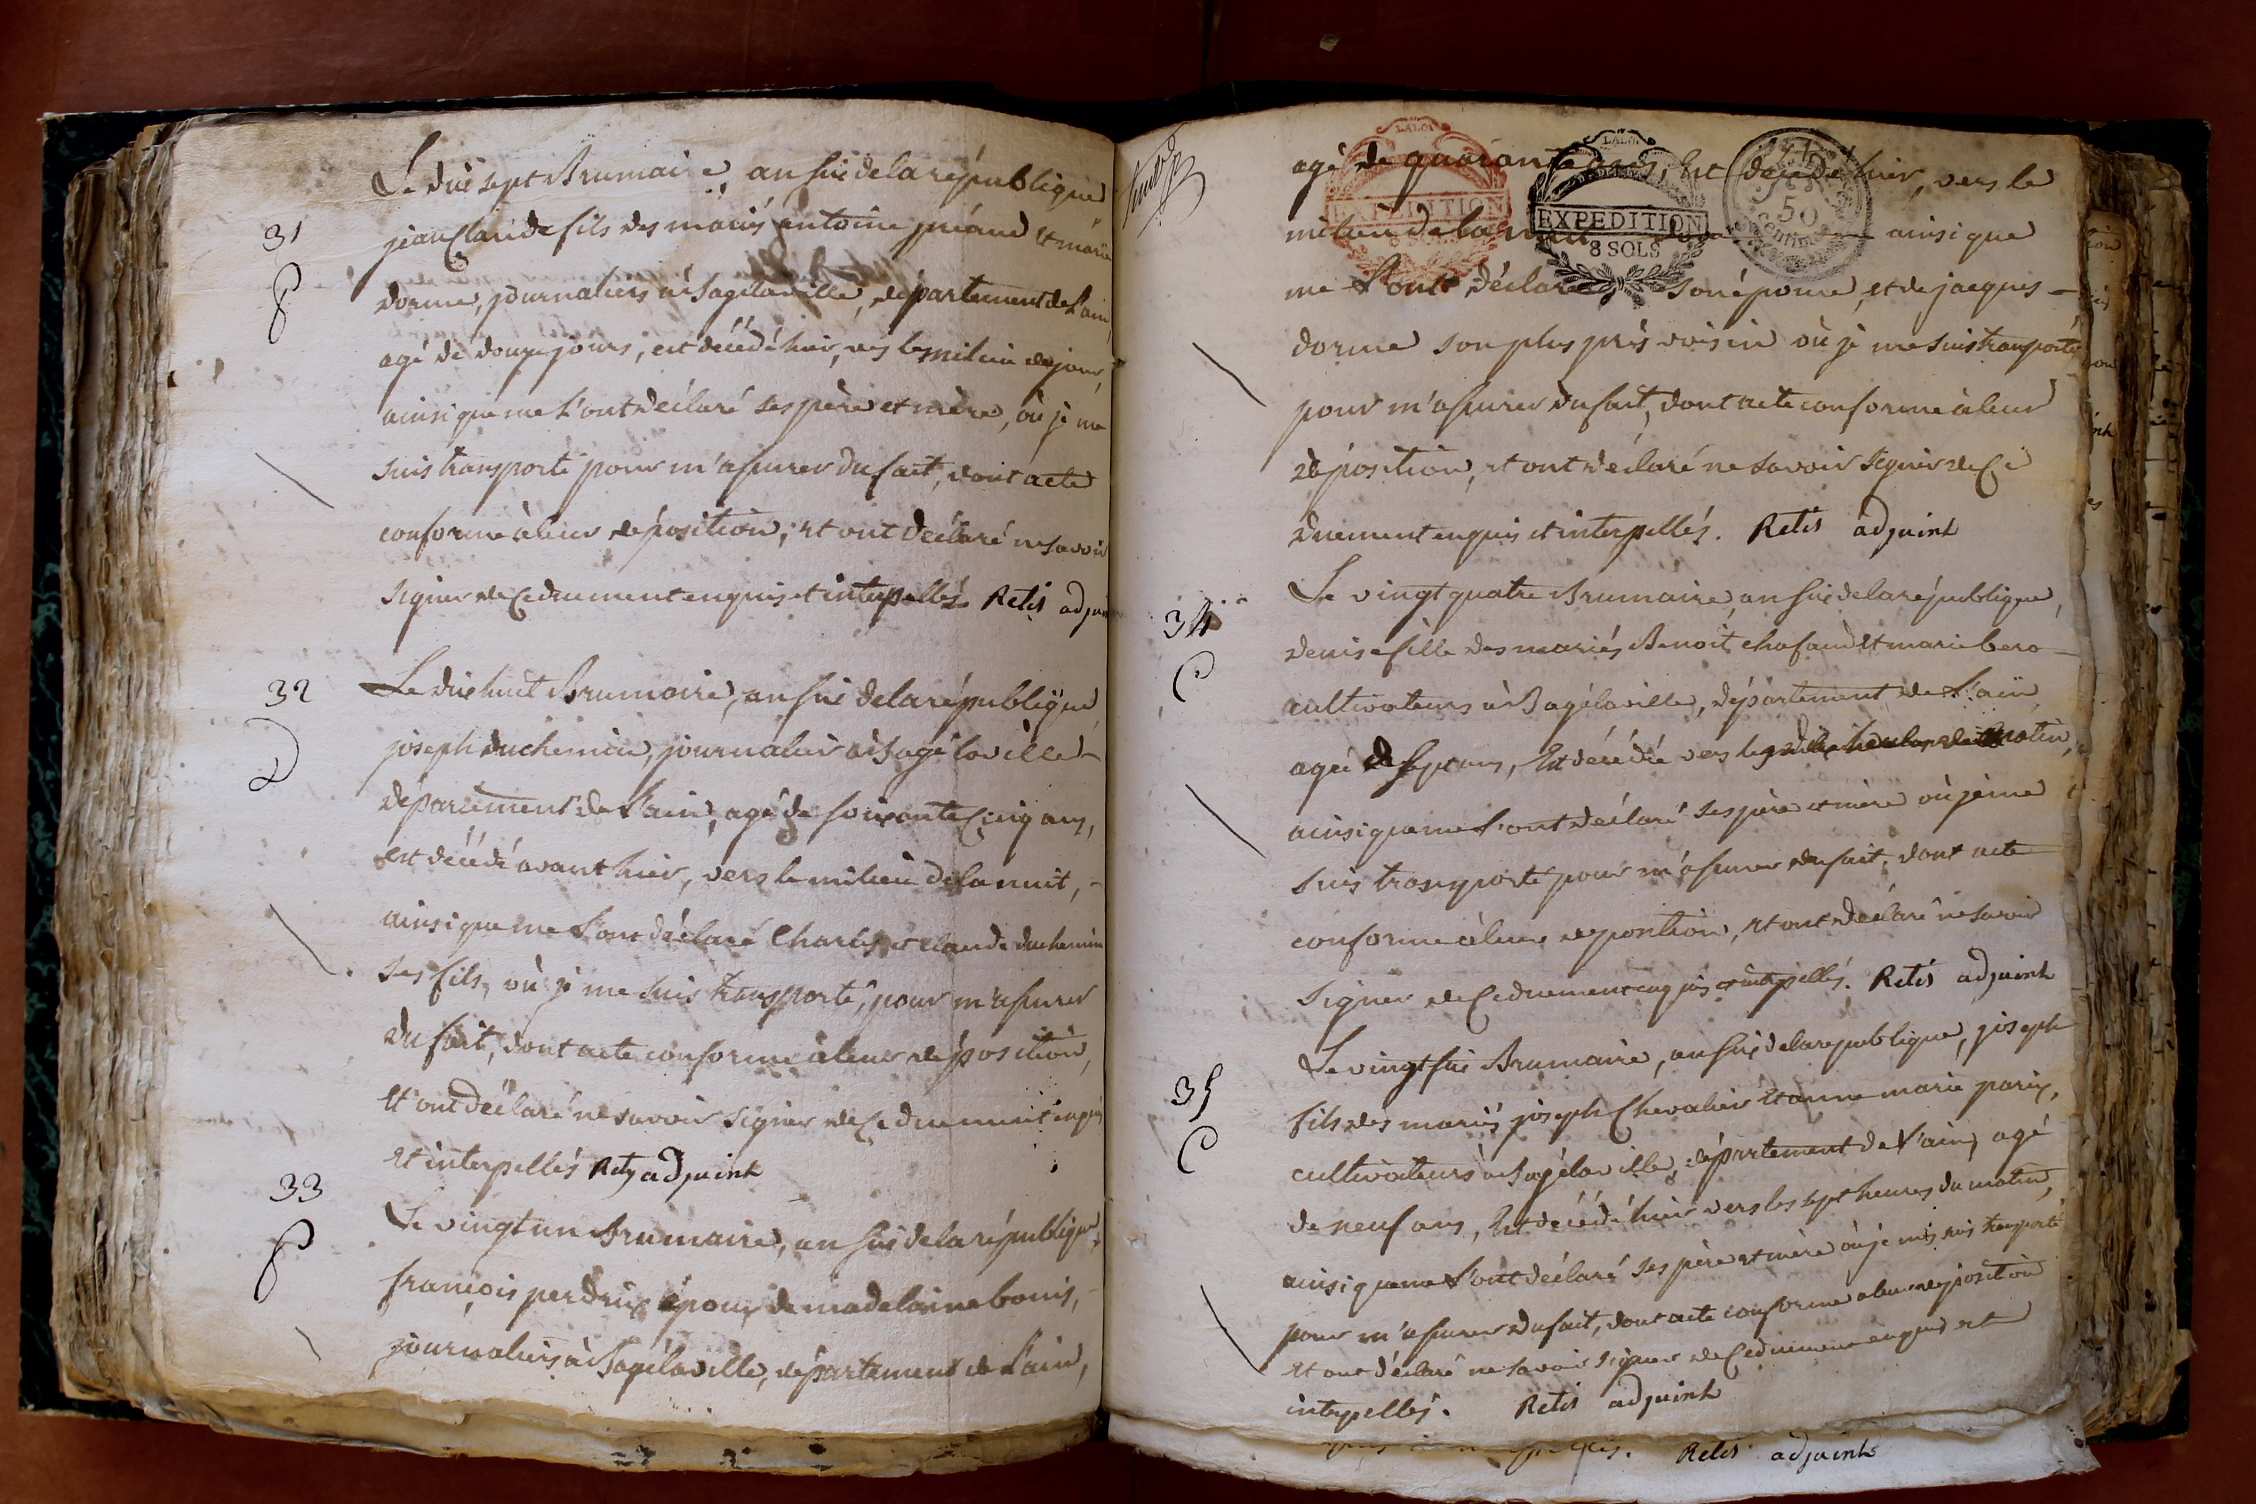 Le dix sept Brumaire, an six de la république
31
jean Claude fils des mariés antoine préaud et marie
P
dorme, journaliers à Bagélaville, département de l'ain,
agé de douze jours, est décédé hier, vers le milieu du jour,
ainsi que me l'ont déclaré ses père et mère, où je me
suis transporté pour m'assurer du fait, dont acte
conforme à leur déposition, et ont déclaré ne savoir
signer de Ce duement enquis et interpellés. Retis adjoint
32
Le dix huit Brumaire, an six de la république,
joseph duchemin, journalier à Bagélaville
D
département de l'ain, agé de soixante Cinq ans,
est décédé avant hier, vers le milieu de la nuit,
ainsi que me l'ont déclaré Charles et claude duchemin
ses fils, où je me suis transporté, pour m'assurer
du fait, dont acte conforme à leur déposition,
Et ont déclaré ne savoir signer de Ce duement enquis
et interpellés Retis adjoint
33
Le vingt un Brumaire, an six de la république,
P
françois perdrix époux de madelaine bonis,
journaliers à Bagélaville, département de l'ain,
agé de quarante ans, Est décédé hier, vers le
milieu de la nuit ainsi que
me l'ont déclaré son épouse, et de jacques
dorme son plus près voisin où je me suis transporté
pour m'assurer du fait, dont acte conforme à leur
déposition, et ont déclaré ne savoir signer de Ce
duement enquis et interpellés. Retis adjoint
LA LOI
EXPEDITION
8 SOLS
LA LOI
EXPEDITION
8 SOLS
50
Centimes
34
Le vingt quatre Brumaire, an six de la république,
denise fille des mariés Benoit chafaud et marie bero
C
cultivateurs à Bagélaville, département de l'ain,
agée de sept ans, Est décédée vers les matin,
ainsi que me l'ont déclaré ses père et mère où je me
suis transporté pour m'assurer du fait, dont acte
conforme à leur deposition, et ont déclaré ne savoir
signer de Ce duement enquis et interpellés. Retis adjoint
35
Le vingt six Brumaire, an six de la republique, joseph
fils des mariés joseph Chevalier et anne marie parix,
C
cultivateurs à Bagélaville, département de l'ain, agé
de neuf ans, Est décédé hier vers les sept heures du matin,
ainsi que me l'ont déclaré ses père et mère où je mis suis transporté
pour m'assurer du fait, dont acte conforme a leur deposition
et ont déclaré ne savoir signer de Ce duement enquis et
interpellés. Retis adjoint
Retis adjoint